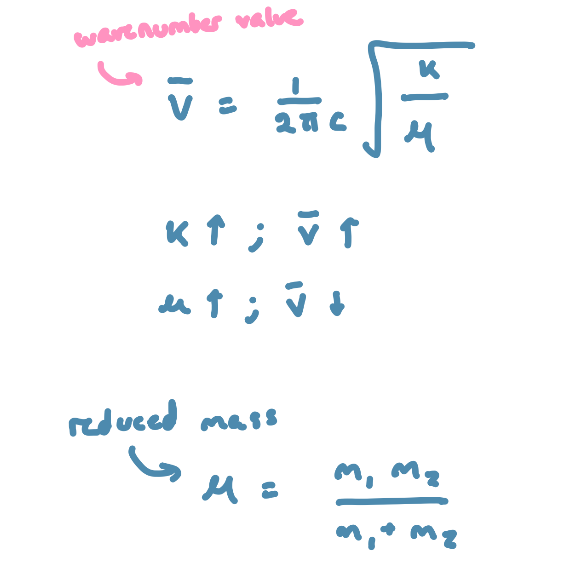 wavenumber value
V̅ = 1/2πc √K/μ
K ↑ ; V̅ ↑
μ ↑ ; V̅ ↓
reduced mass
μ = m₁ m₂ / m₁ + m₂